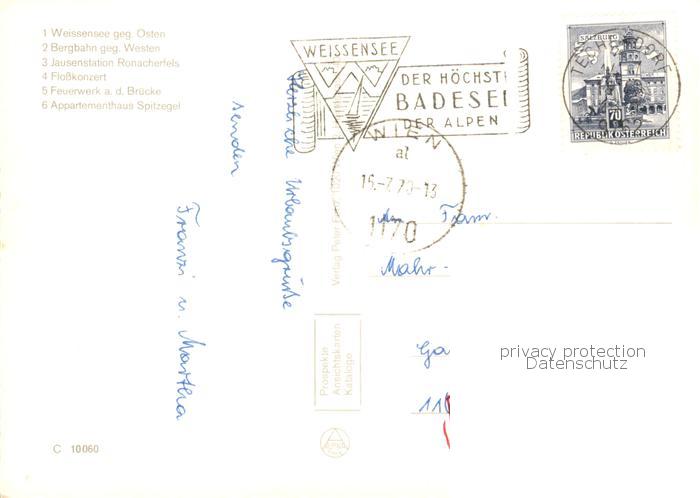 1 Weissensee geg. Osten
2 Bergbahn geg. Westen
3 Jausenstation Ronacherfels
4 Floßkonzert
5 Feuerwerk a. d. Brücke
6 Appartementhaus Spitzegel
WEISSENSEE
DER HÖCHST
BADESEE
DER ALPEN
SALZBURG
70
REPUBLIK ÖSTERREICH
WIEN
at
1170
Herzliche Urlaubsgrüße
senden
Franzi u. Martha
Verlag Peter
Prospekte
Ansichtskarten
Kataloge
An Fam.
Mahr.
Ga
116
privacy protection
Datenschutz
C 10060